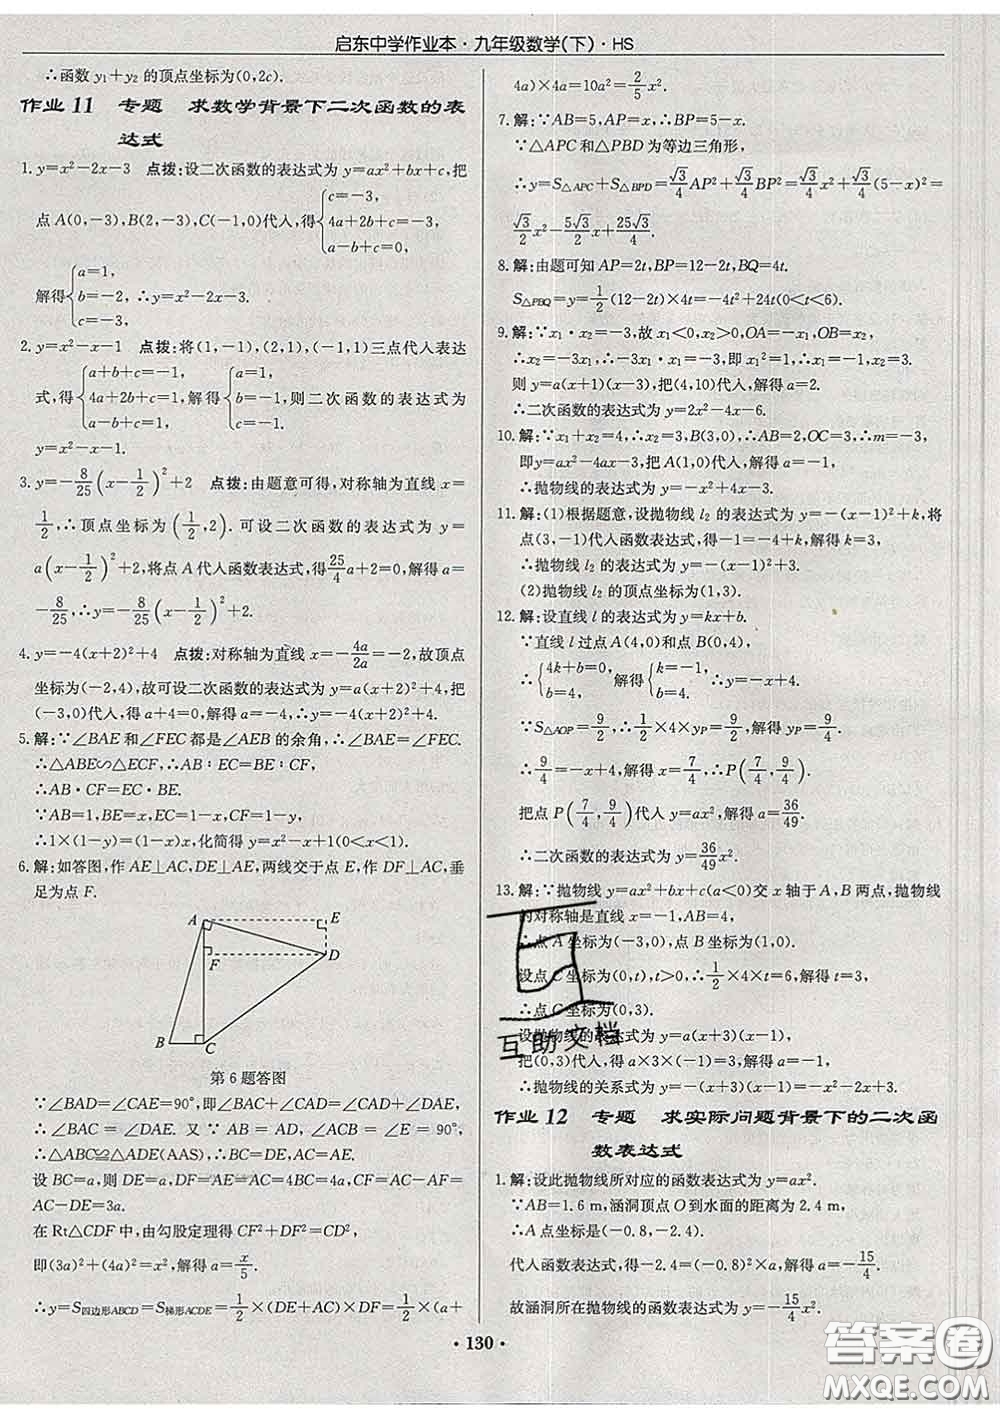 启东中学作业本·九年级数学(下)·HS
∴函数 y₁+y₂ 的顶点坐标为(0,2c).
作业 11 专题 求数学背景下二次函数的表
达式
1. y=x²-2x-3 点拨:设二次函数的表达式为 y=ax²+bx+c,把
点 A(0,-3),B(2,-3),C(-1,0)代入,得{c=-3, 4a+2b+c=-3, a-b+c=0,
解得{a=1, b=-2, c=-3, ∴y=x²-2x-3.
2. y=x²-x-1 点拨:将(1,-1),(2,1),(-1,1)三点代入表达
式,得{a+b+c=-1, 4a+2b+c=1, a-b+c=1, 解得{a=1, b=-1, c=-1. 则二次函数的表达式为
y=x²-x-1.
3. y=-8/25(x-1/2)²+2 点拨:由题意可得,对称轴为直线 x=
1/2,∴顶点坐标为(1/2,2). 可设二次函数的表达式为 y=
a(x-1/2)²+2,将点 A 代入函数表达式,得25/4a+2=0,解得 a=
-8/25,∴y=-8/25(x-1/2)²+2.
4. y=-4(x+2)²+4 点拨:对称轴为直线 x=-4a/2a=-2,故顶点
坐标为(-2,4),故可设二次函数的表达式为 y=a(x+2)²+4,把
(-3,0)代入,得 a+4=0,解得 a=-4,∴y=-4(x+2)²+4.
5. 解:∵∠BAE 和∠FEC 都是∠AEB 的余角,∴∠BAE=∠FEC.
∴△ABE∽△ECF,∴AB∶EC=BE∶CF,
∴AB·CF=EC·BE.
∵AB=1,BE=x,EC=1-x,CF=1-y,
∴1×(1-y)=(1-x)x,化简得 y=x²-x+1(0<x<1).
6. 解:如答图,作 AE⊥AC,DE⊥AE,两线交于点 E,作 DF⊥AC,垂
足为点 F.
A E
F D
B C
第 6 题答图
∵∠BAD=∠CAE=90°,即∠BAC+∠CAD=∠CAD+∠DAE,
∴∠BAC=∠DAE. 又∵AB=AD,∠ACB=∠E=90°,
∴△ABC≌△ADE(AAS),∴BC=DE,AC=AE.
设 BC=a,则 DE=a,DF=AE=AC=4BC=4a,CF=AC-AF=
AC-DE=3a.
在 Rt△CDF 中,由勾股定理得 CF²+DF²=CD²,
即(3a)²+(4a)²=x²,解得 a=x/5.
∴y=S四边形ABCD=S梯形ACDE=1/2×(DE+AC)×DF=1/2×(a+
4a)×4a=10a²=2/5x².
7. 解:∵AB=5,AP=x,∴BP=5-x.
∵△APC 和△PBD 为等边三角形,
∴y=S△APC+S△BPD=√3/4AP²+√3/4BP²=√3/4x²+√3/4(5-x)²=
√3/2x²-5√3/2x+25√3/4.
8. 解:由题可知 AP=2t,BP=12-2t,BQ=4t.
S△PBQ=y=1/2(12-2t)×4t=-4t²+24t(0<t<6).
9. 解:∵x₁·x₂=-3,故 x₁<0,x₂>0,OA=-x₁,OB=x₂,
∴x₂=-3x₁,∴-3x₁·x₁=-3,即 x₁²=1,∴x₁=-1,∴x₂=3.
则 y=a(x+1)(x-3),把(4,10)代入,解得 a=2.
∴二次函数的表达式为 y=2x²-4x-6.
10. 解:∵x₁+x₂=4,∴x₂=3,B(3,0),∴AB=2,OC=3,∴m=-3,
即y=ax²-4ax-3,把 A(1,0)代入,解得 a=-1,
∴抛物线的表达式为 y=-x²+4x-3.
11. 解:(1)根据题意,设抛物线 l₂ 的表达式为 y=-(x-1)²+k,将
点(3,-1)代入函数表达式,得-1=-4+k,解得 k=3,
∴抛物线 l₂ 的表达式为 y=-(x-1)²+3.
(2)抛物线 l₂ 的顶点坐标为(1,3).
12. 解:设直线 l 的表达式为 y=kx+b.
∵直线 l 过点 A(4,0)和点 B(0,4),
∴{4k+b=0, b=4, 解得{k=-1, b=4. ∴y=-x+4.
∵S△AOP=9/2,∴1/2×4×yP=9/2,解得 yP=9/4.
∴9/4=-x+4,解得 x=7/4,∴P(7/4,9/4).
把点 P(7/4,9/4)代入 y=ax²,解得 a=36/49.
∴二次函数的表达式为 y=36/49x².
13. 解:∵抛物线 y=ax²+bx+c(a<0)交 x 轴于 A,B 两点,抛物线
的对称轴是直线 x=-1,AB=4,
∴点 A 坐标为(-3,0),点 B 坐标为(1,0).
设点 C 坐标为(0,t),t>0,∴1/2×4×t=6,解得 t=3,
∴点 C 坐标为(0,3).
设抛物线的表达式为 y=a(x+3)(x-1),
把(0,3)代入,得 a×3×(-1)=3,解得 a=-1,
∴抛物线的关系式为 y=-(x+3)(x-1)=-x²-2x+3.
作业 12 专题 求实际问题背景下的二次函
数表达式
1. 解:设此抛物线所对应的函数表达式为 y=ax².
∵AB=1.6 m,涵洞顶点 O 到水面的距离为 2.4 m,
∴A 点坐标是(-0.8,-2.4).
代入函数表达式,得-2.4=(-0.8)²×a,解得 a=-15/4,
故涵洞所在抛物线的函数表达式为 y=-15/4x².
·130·
互助文档
答案圈
MXQE.COM